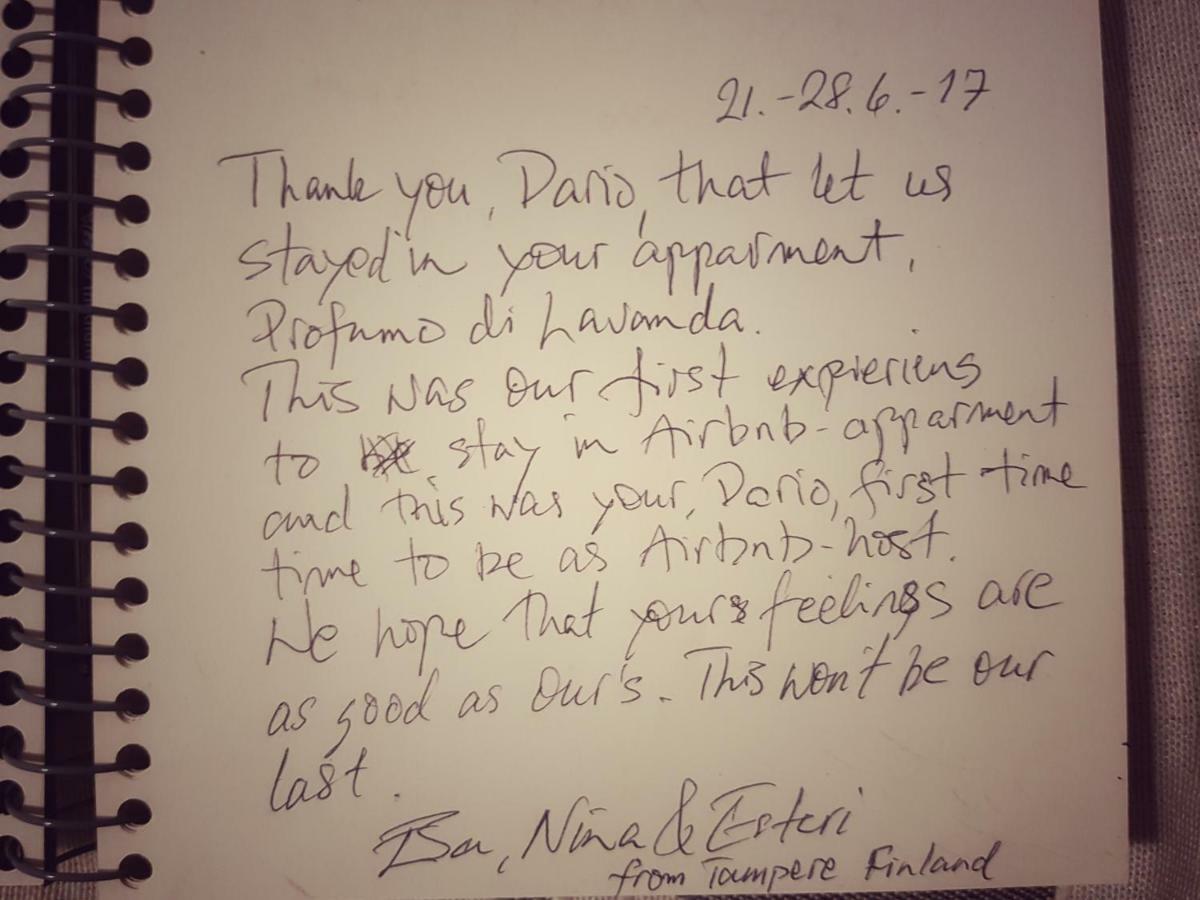 21.-28.6.-17
Thank you, Dario, that let us
stayed in your apparment,
Profumo di Lavanda.
This was our first expieriens
to stay in Airbnb-apparment
and this was your, Dario, first time
time to be as Airbnb-host.
We hope that your feelings are
as good as our's. This won't be our
last.
Nina & Esteri
from Tampere Finland